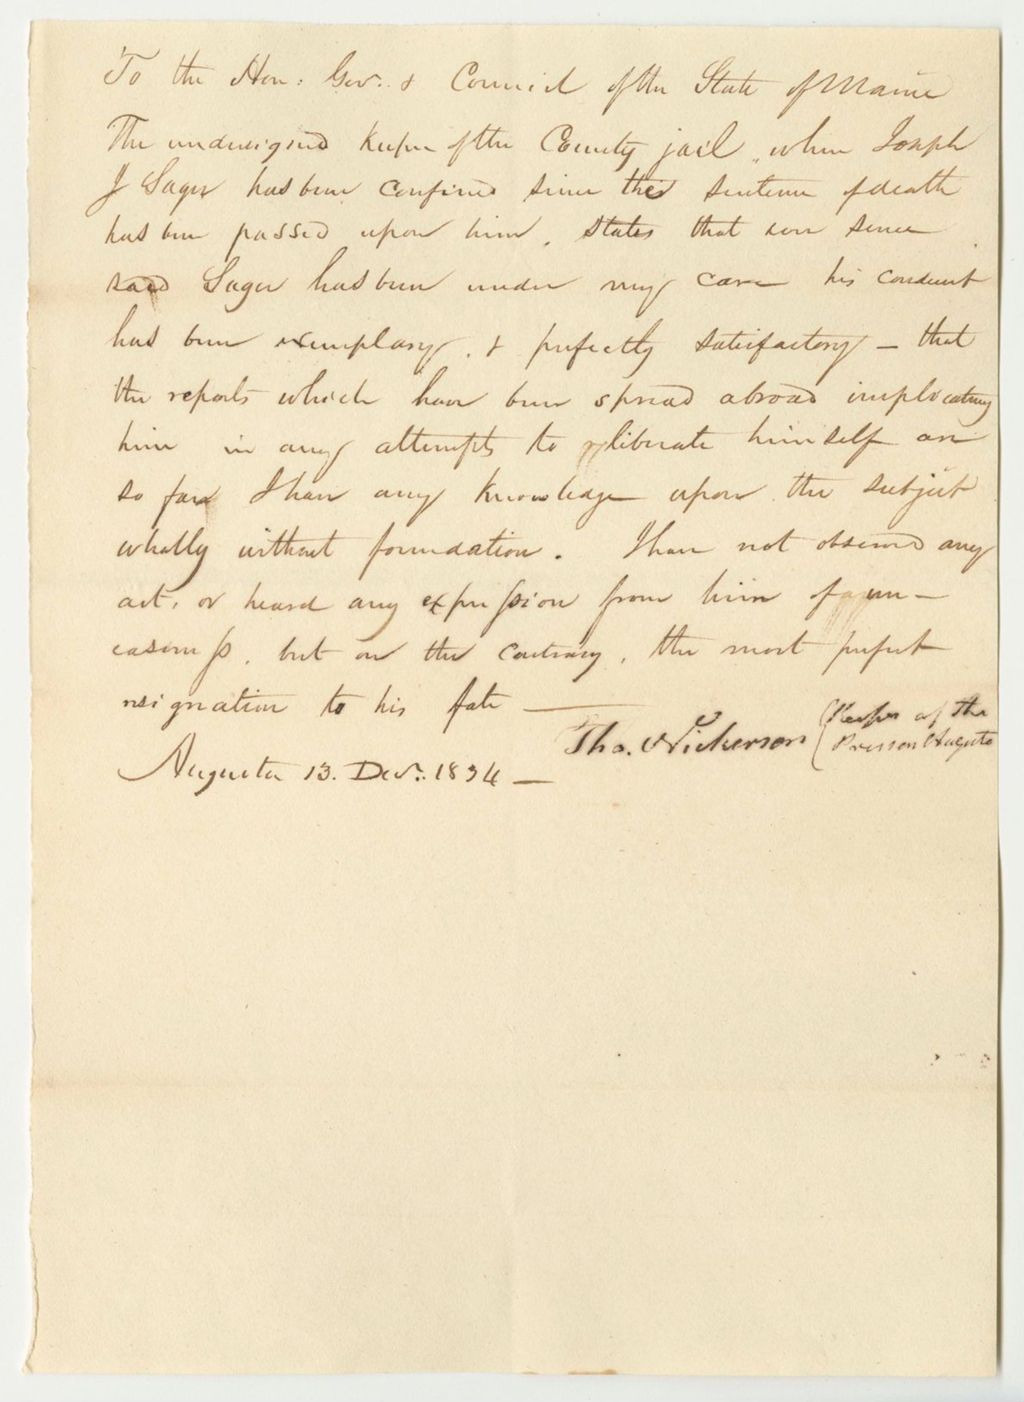 To the Hon: Gov:. & Council of the State of Maine
The undersigned Keeper of the County jail, where Joseph
J Sager has been confined since the sentence of death
has been passed upon him, states that ever since
said Sager has been under my care his conduct
has been exemplary, & perfectly satisfactory – that
the reports which have been spread abroad implicating
him in any attempts to liberate himself are
so far I have any knowledge upon the subject
wholly without foundation. I have not observed any
act, or heard any expression from him of un–
easiness, but on the contrary, the most perfect
resignation to his fate —
Tho. Nickerson (Keeper of the
Preison Augusta
Augusta 13. Decr:. 1834 —